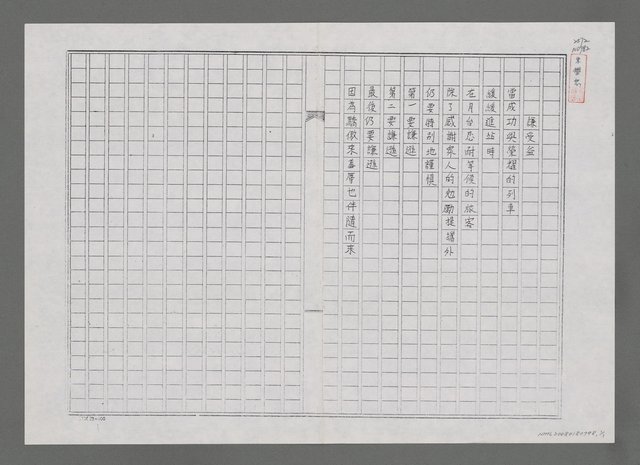 謙受益
當成功與榮耀的列車
緩緩進站時
在月台忍耐等候的旅客
除了感謝眾人的勉勵提攜外
仍要特別地謹慎
第一要謙遜
第二要謙遜
最後仍要謙遜
因為驕傲來羞辱也伴隨而來